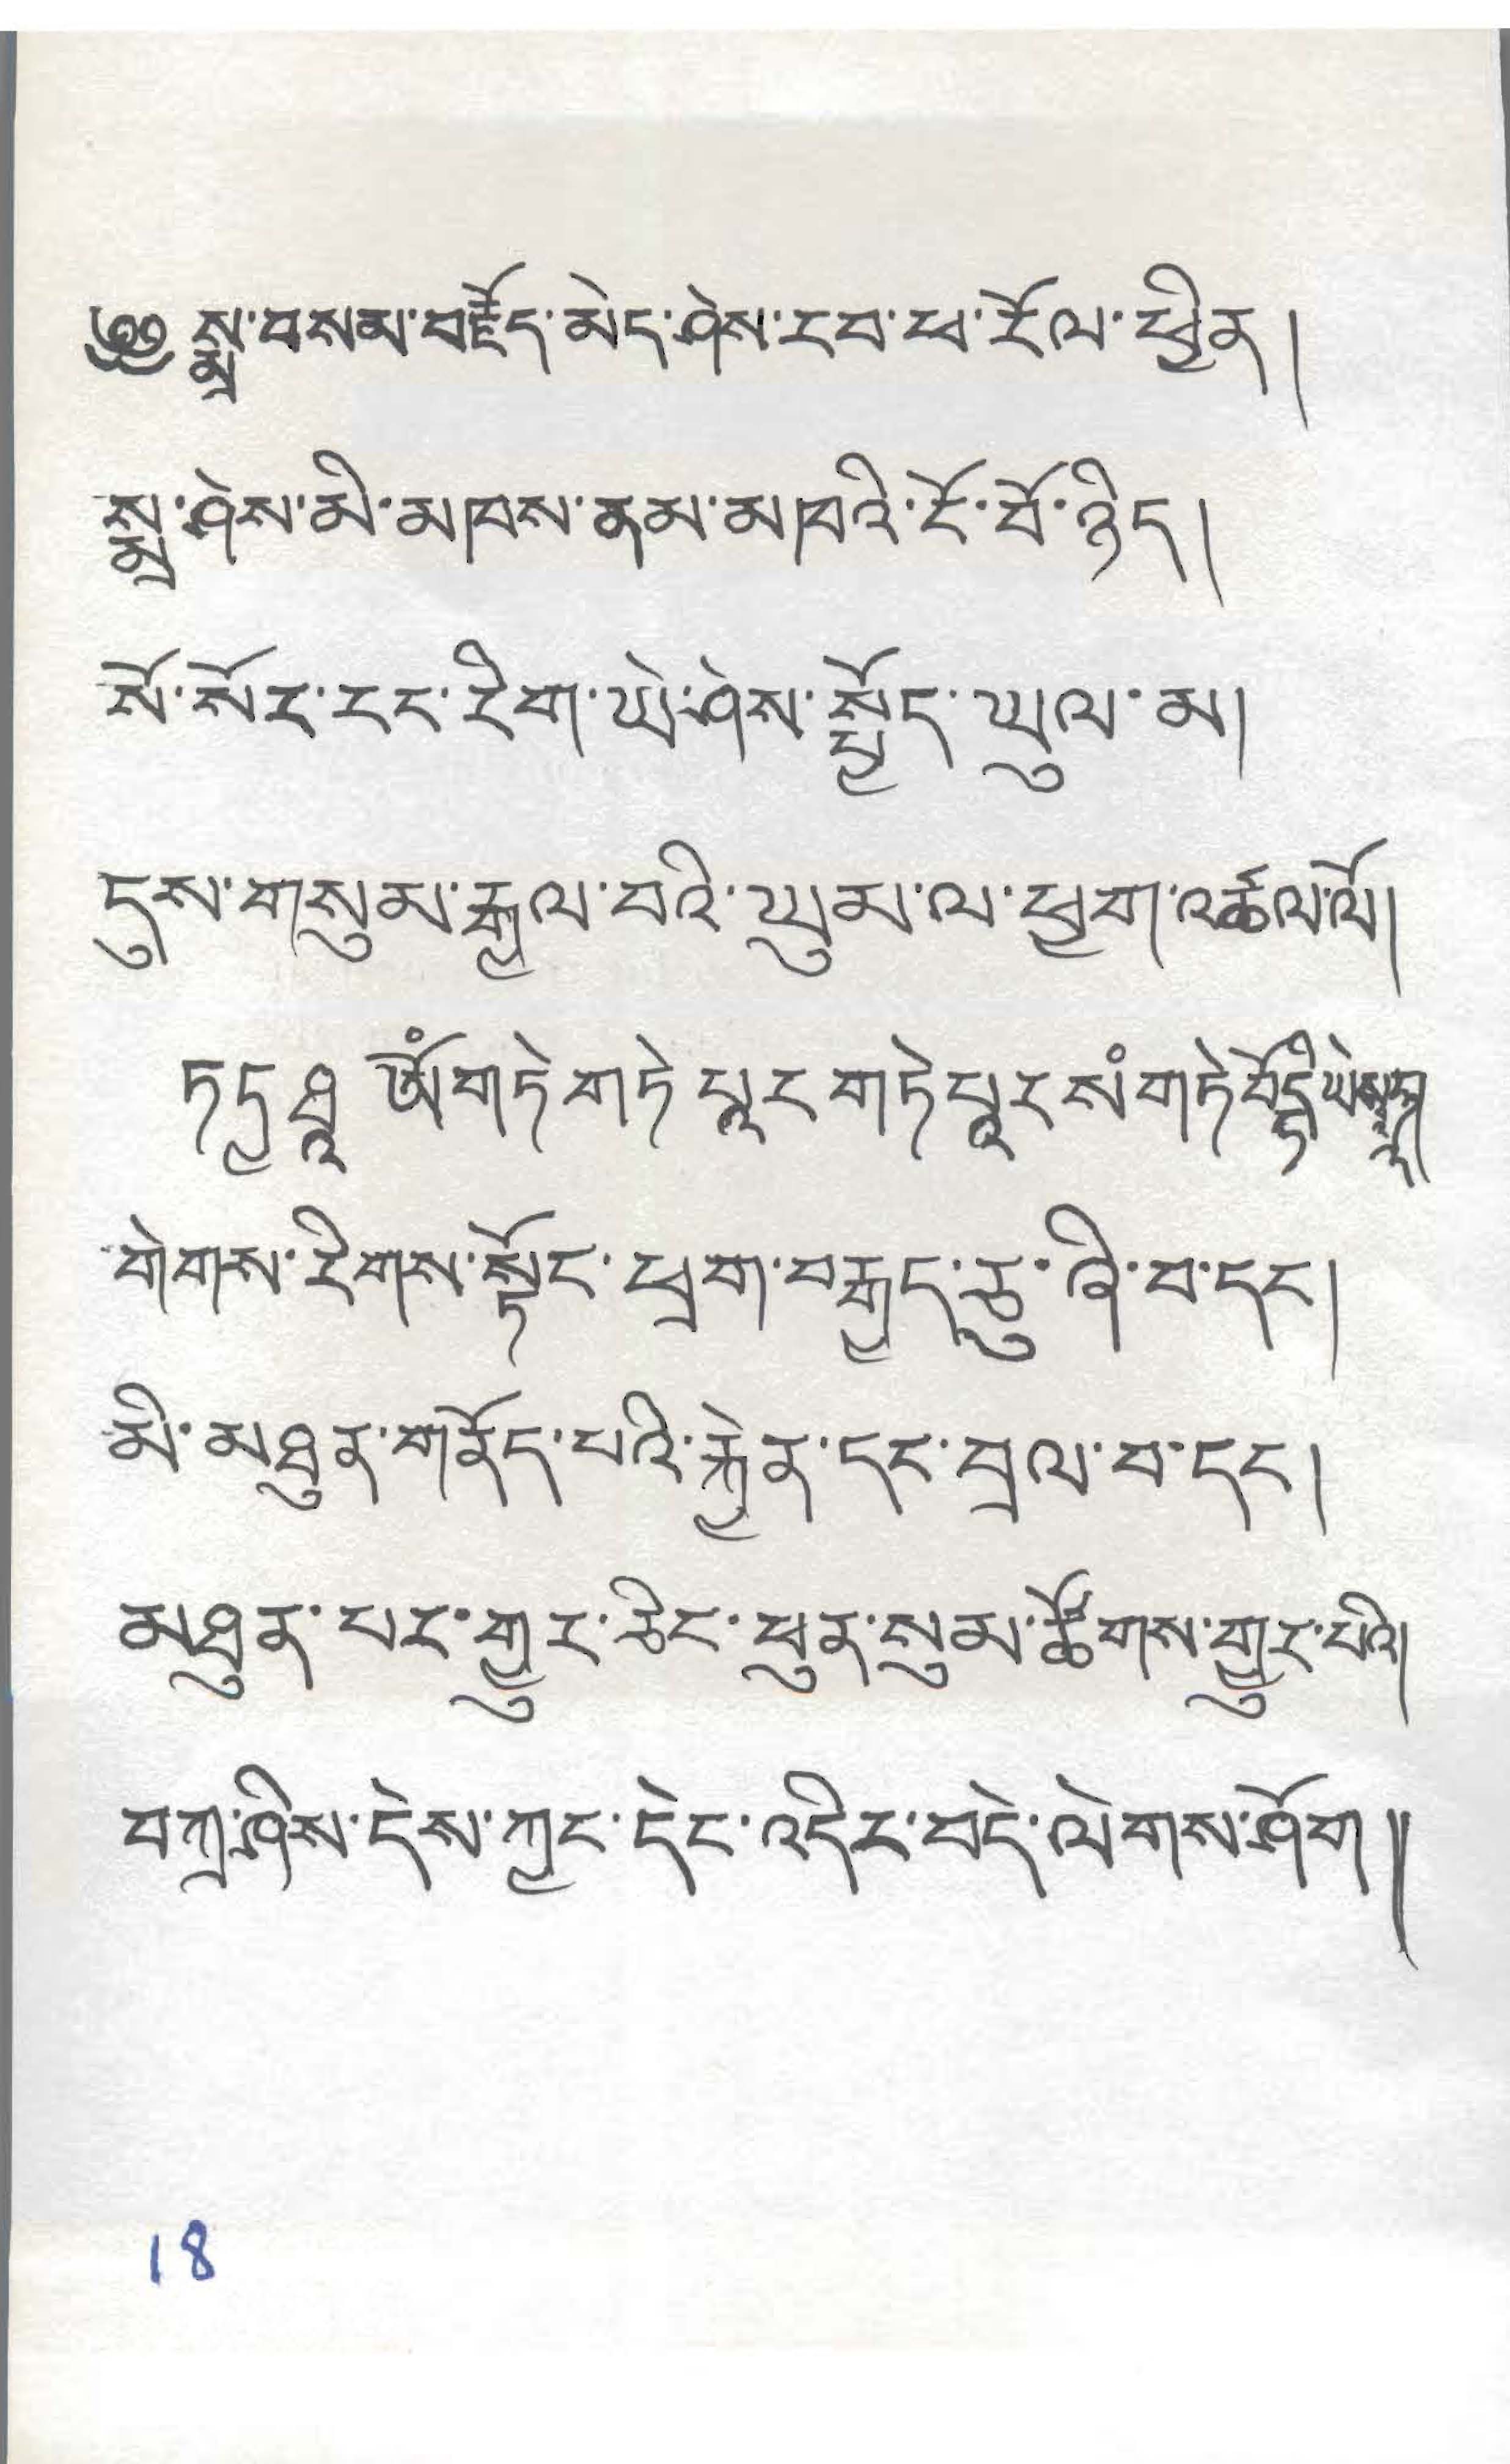 ༄༅སྨྲ་བསམ་བརྗོད་མེད་ཤེས་རབ་ཕ་རོལ་ཕྱིན།
སྨྲ་ཤེས་མི་མཁས་ནམ་མཁའི་ངོ་བོ་ཉིད།
སོ་སོར་རང་རིག་ཡེ་ཤེས་སྤྱོད་ཡུལ་མ།
དུས་གསུམ་རྒྱལ་བའི་ཡུམ་ལ་ཕྱག་འཚལ་ལོ།
ཏདྱཐཱ ཨོཾ་གཏེ་གཏེ་པཱར་གཏེ་པཱར་སཾ་གཏེ་བོདྷི་ཡེ་སྭཱཧཱ
གེགས་རིགས་སྟོང་ཕྲག་བརྒྱད་ཅུ་ཞི་བ་དང་།
མི་མཐུན་གནོད་པའི་རྐྱེན་དང་བྲལ་བ་དང་།
མཐུན་པར་གྱུར་ཅིང་ཕུན་སུམ་ཚོགས་གྱུར་པའི།
བཀྲ་ཤིས་དེས་ཀྱང་དེང་འདིར་བདེ་ལེགས་ཤོག༎
18